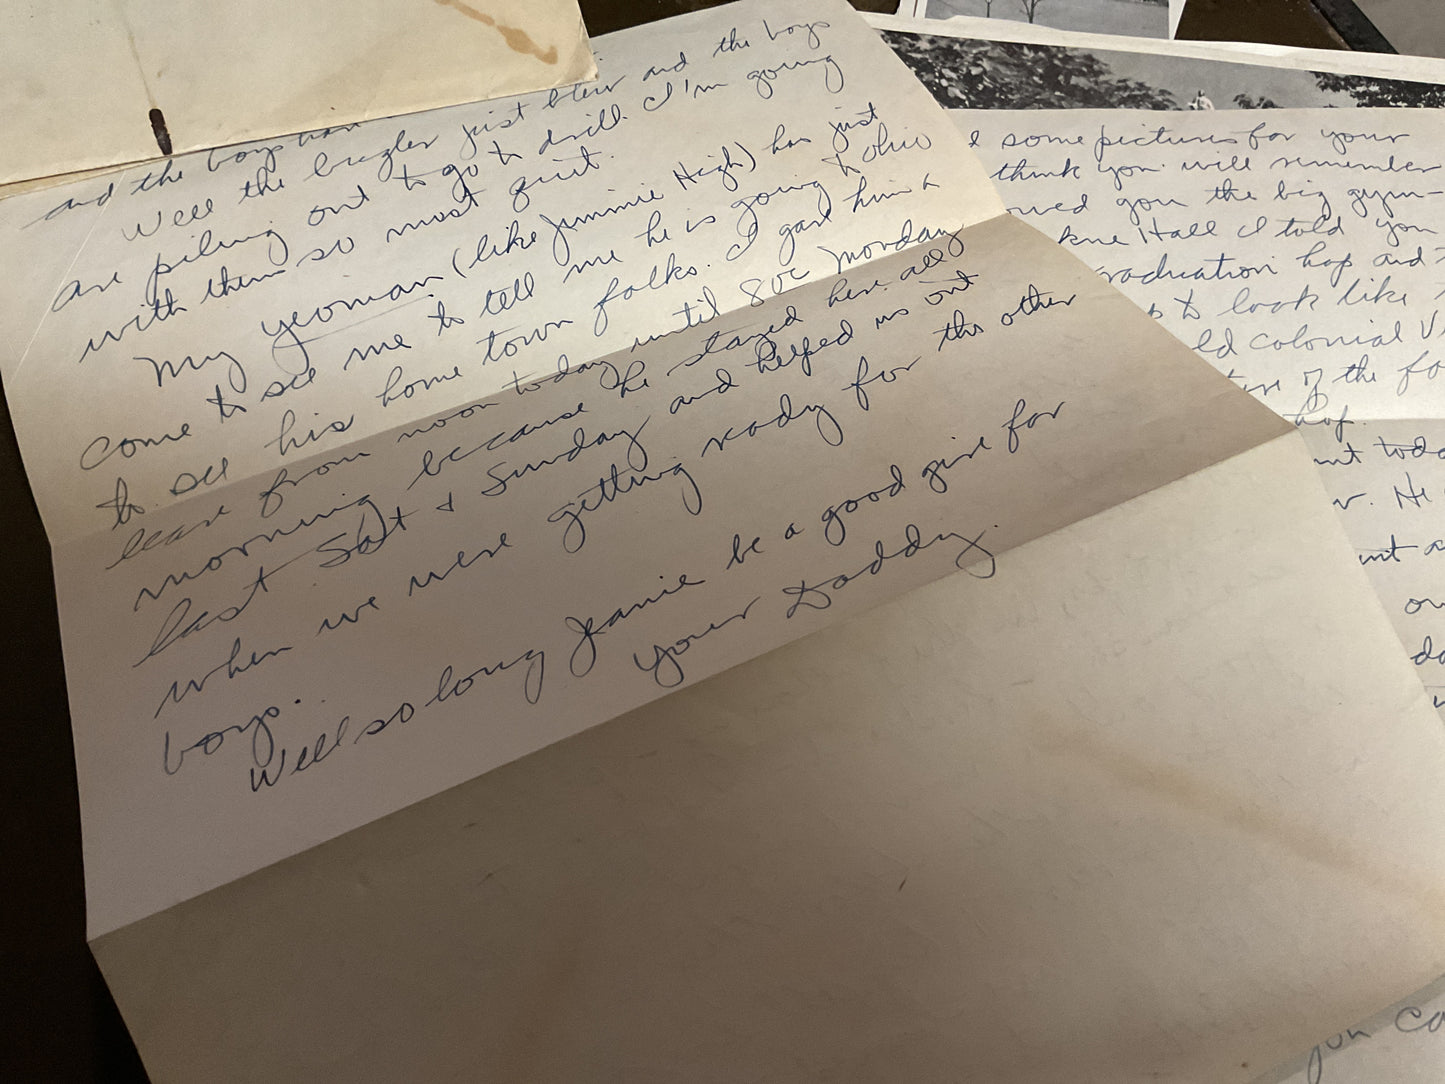 and the boys
Well the bugler just blew and the boys
are piling out to go to drill I'm going
with them so must quit.
My yeoman (like Jimmie High) has just
come to see me to tell me he is going to Ohio
to see his home town folks. I gave him a
leave from noon today until 800 Monday
morning because he stayed here all
last Sat + Sunday and helped us out
when we were getting ready for the other
boys.
Well so long Jeanie be a good girl for
Your Daddy.
some pictures for your
think you will remember
you the big gym-
Hall I told you
graduation hop and
to look like
old colonial
of the
hop.
today
He
you